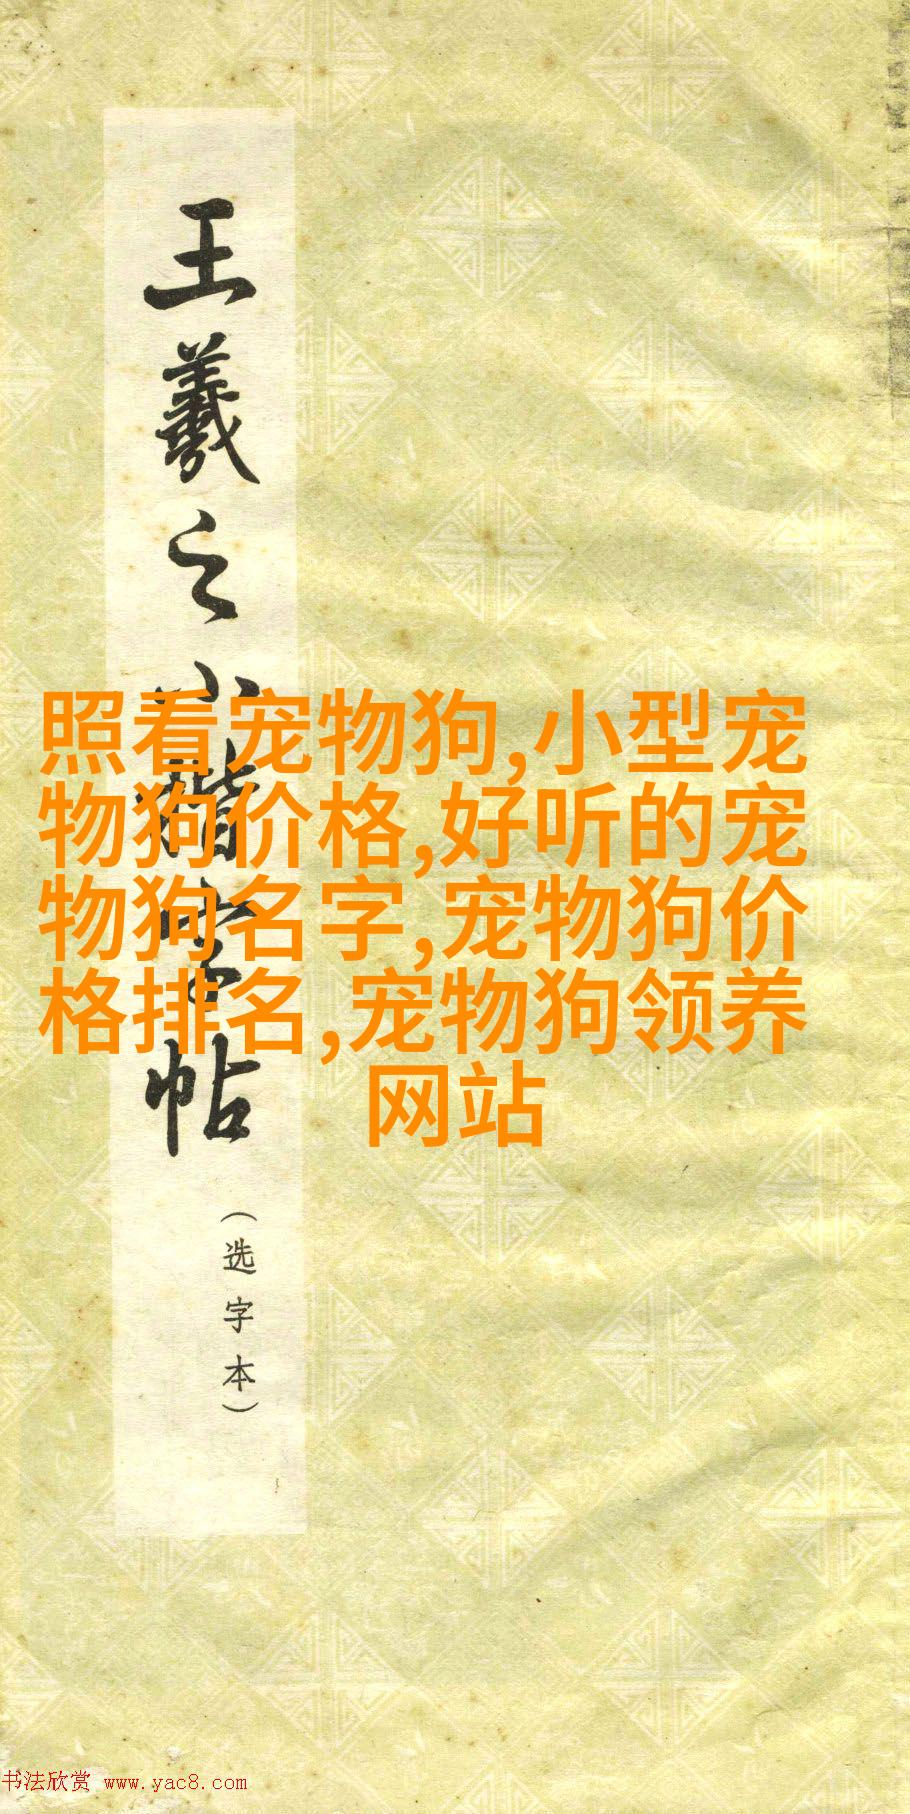 王羲之小楷字帖
(选字本)
照看宠物狗,小型宠
物狗价格,好听的宠
物狗名字,宠物狗价
格排名,宠物狗领养
网站
书法欣赏 www.yac8.com